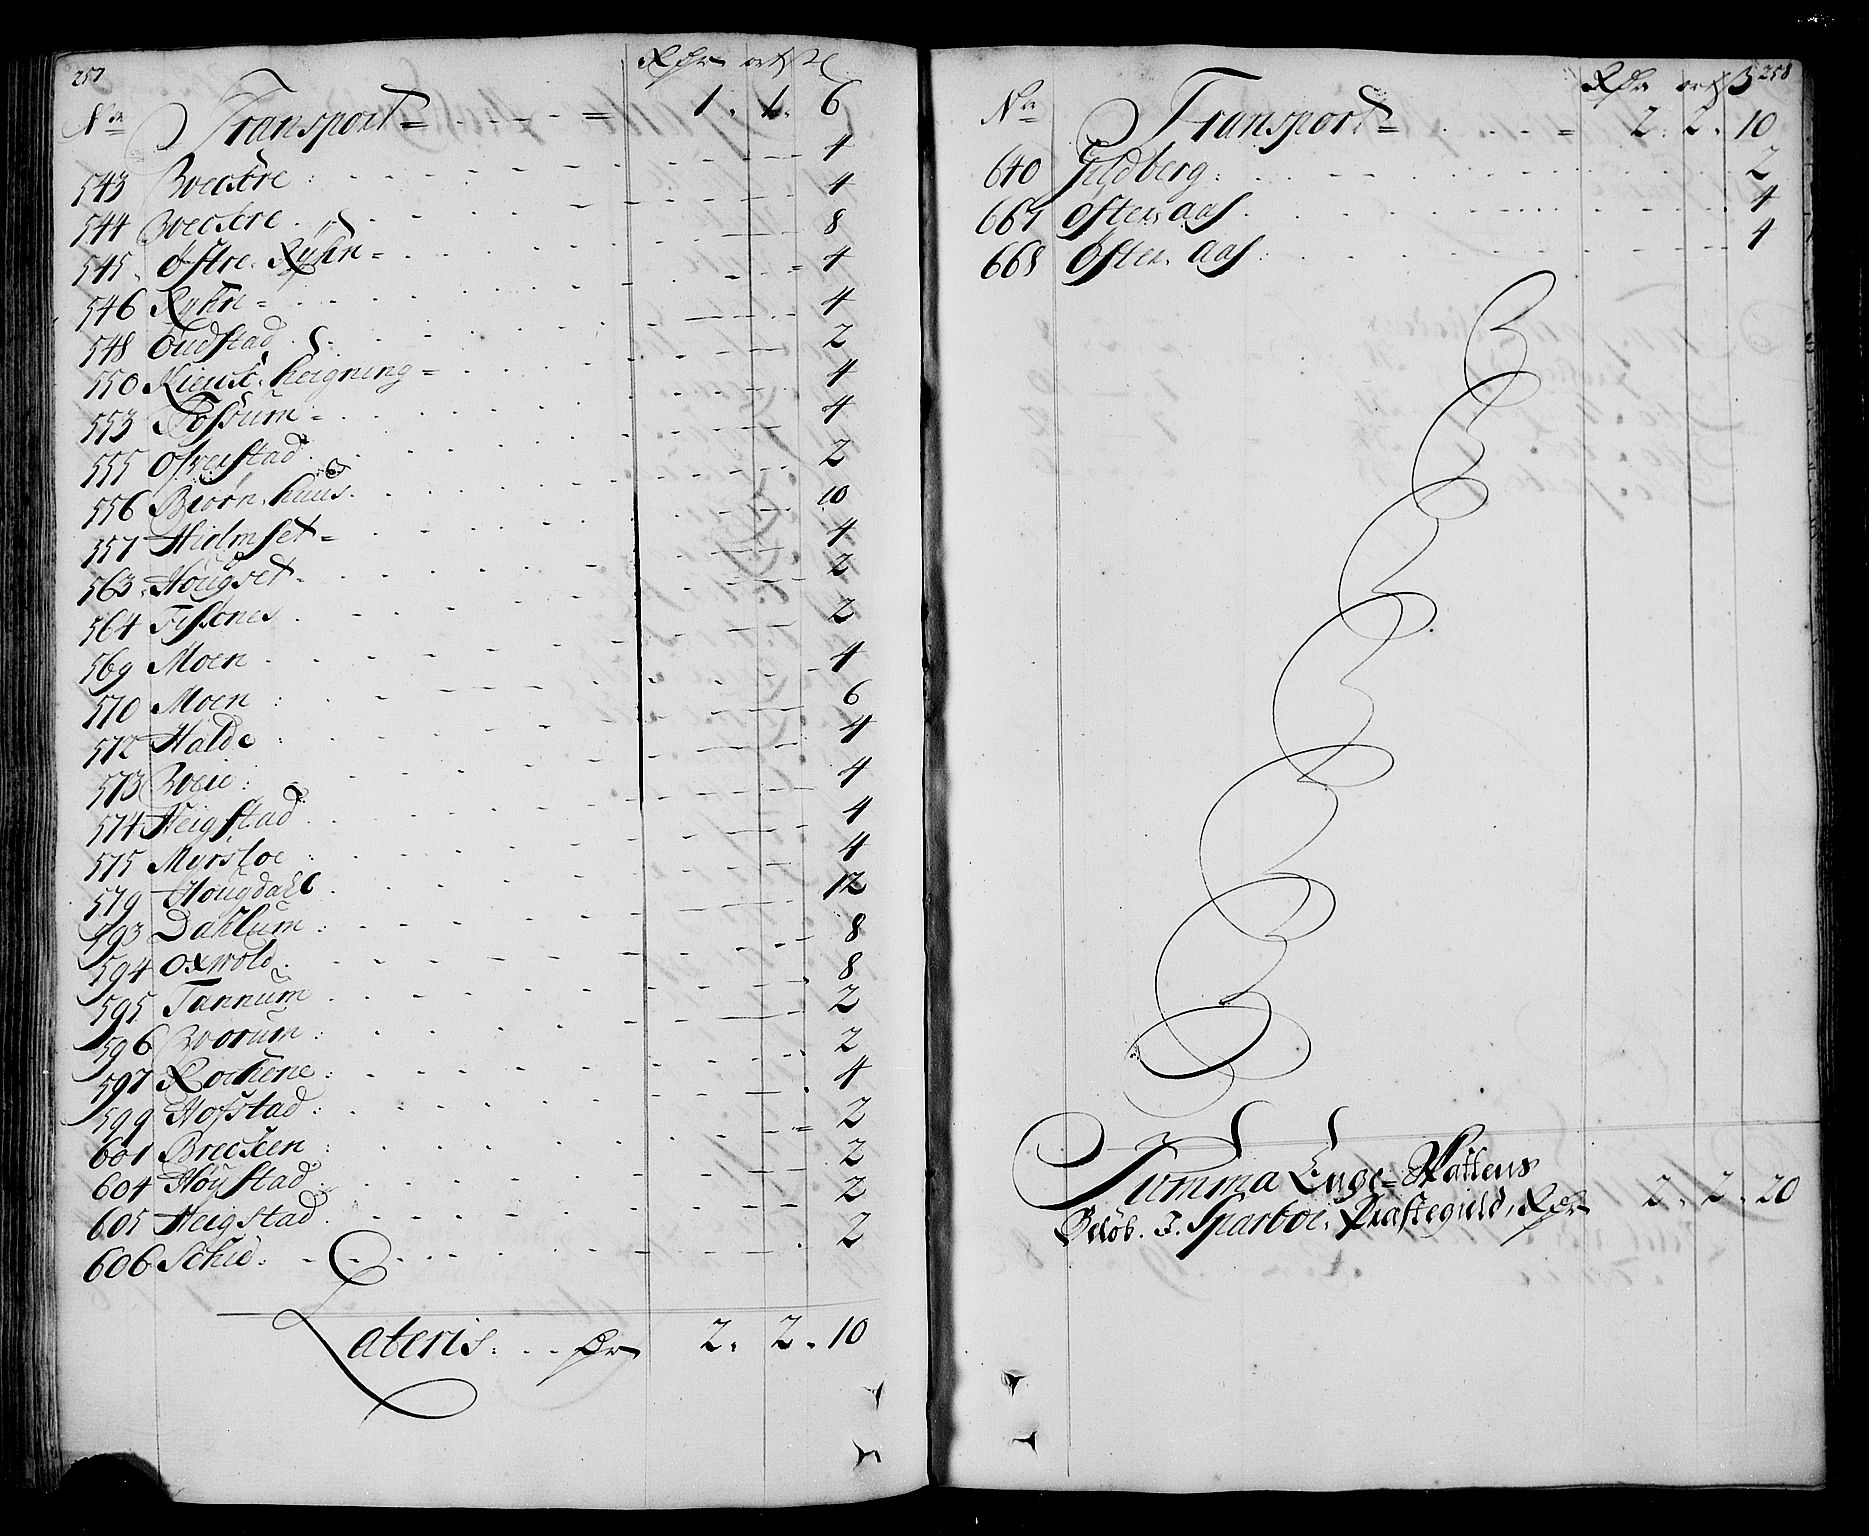 257
Rdr ort ß
No Transport = 1. 1. 6
543 Boestre 4
544 Boestre 4
545 Østre Ryhn = 8
546 Ryhn = 4
548 Oudstad 4
550 Kiensl. heigning = 2
553 Fossum 4
555 Ofveistad 4
556 Biørn huus 2
557 Hielmset 10
563 Hougset 4
564 Fissenes 2
569 Moen 2
570 Moen 4
572 Halde 6
573 Boeie 4
574 Heigstad 4
575 Myrsloe 4
579 Hougdahl 4
593 Dahlum 12
594 Oxwold 8
595 Tannum 8
596 Boorum 2
597 Rochene 2
599 Hofstad 4
601 Brecken 2
604 Høystad 2
605 Heigstad 2
606 Schie 2
Lateris Dr 2. 2. 10
258
Rdr ort ß
No Transport 2. 2. 10
640 Gildberg 2
667 Øster aas 4
668 Øster aas 4
Summa Enge-Skattens
Beløb. I. Sparboe Præstegield, Rdr 2. 2. 20